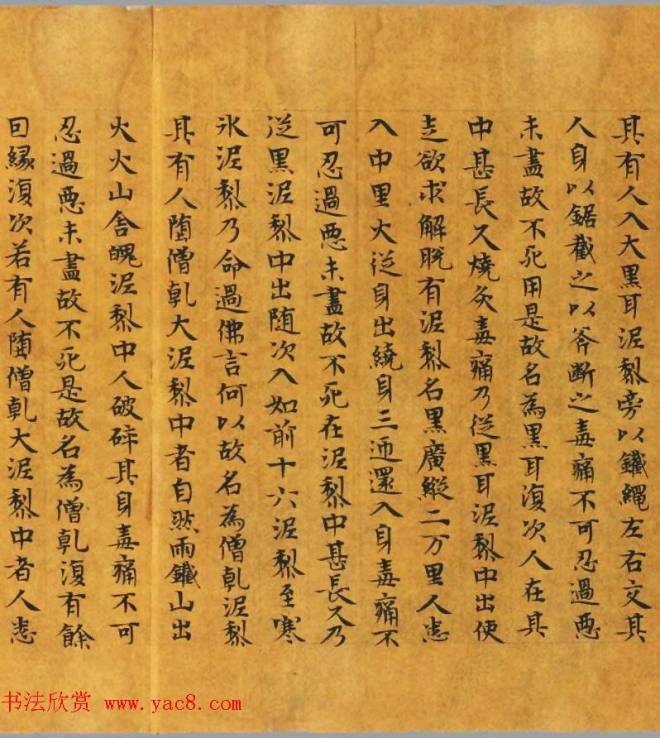 其有人入大黑耳泥黎旁以鐵繩左右交其
人身以鋸截之以斧斷之毒痛不可忍過惡
未盡故不死用是故名為黑耳復次人在其
中甚長久燒炙毒痛乃從黑耳泥黎中出便
走欲求解脫有泥黎名黑廣縱二万里人悉
入中里火從身出繞身三迊還入身毒痛不
可忍過惡未盡故不死在泥黎中甚長久乃
從黑泥黎中出隨次入如前十六泥黎至寒
氷泥黎乃命過佛言何以故名為僧乹泥黎
其有人墮僧乹大泥黎中者自然兩鐵山出
火火山含魄泥黎中人破碎其身毒痛不可
忍過惡未盡故不死是故名為僧乹復有餘
因緣復次若有人墮僧乹大泥黎中者人悉
书法欣赏 www.yac8.com